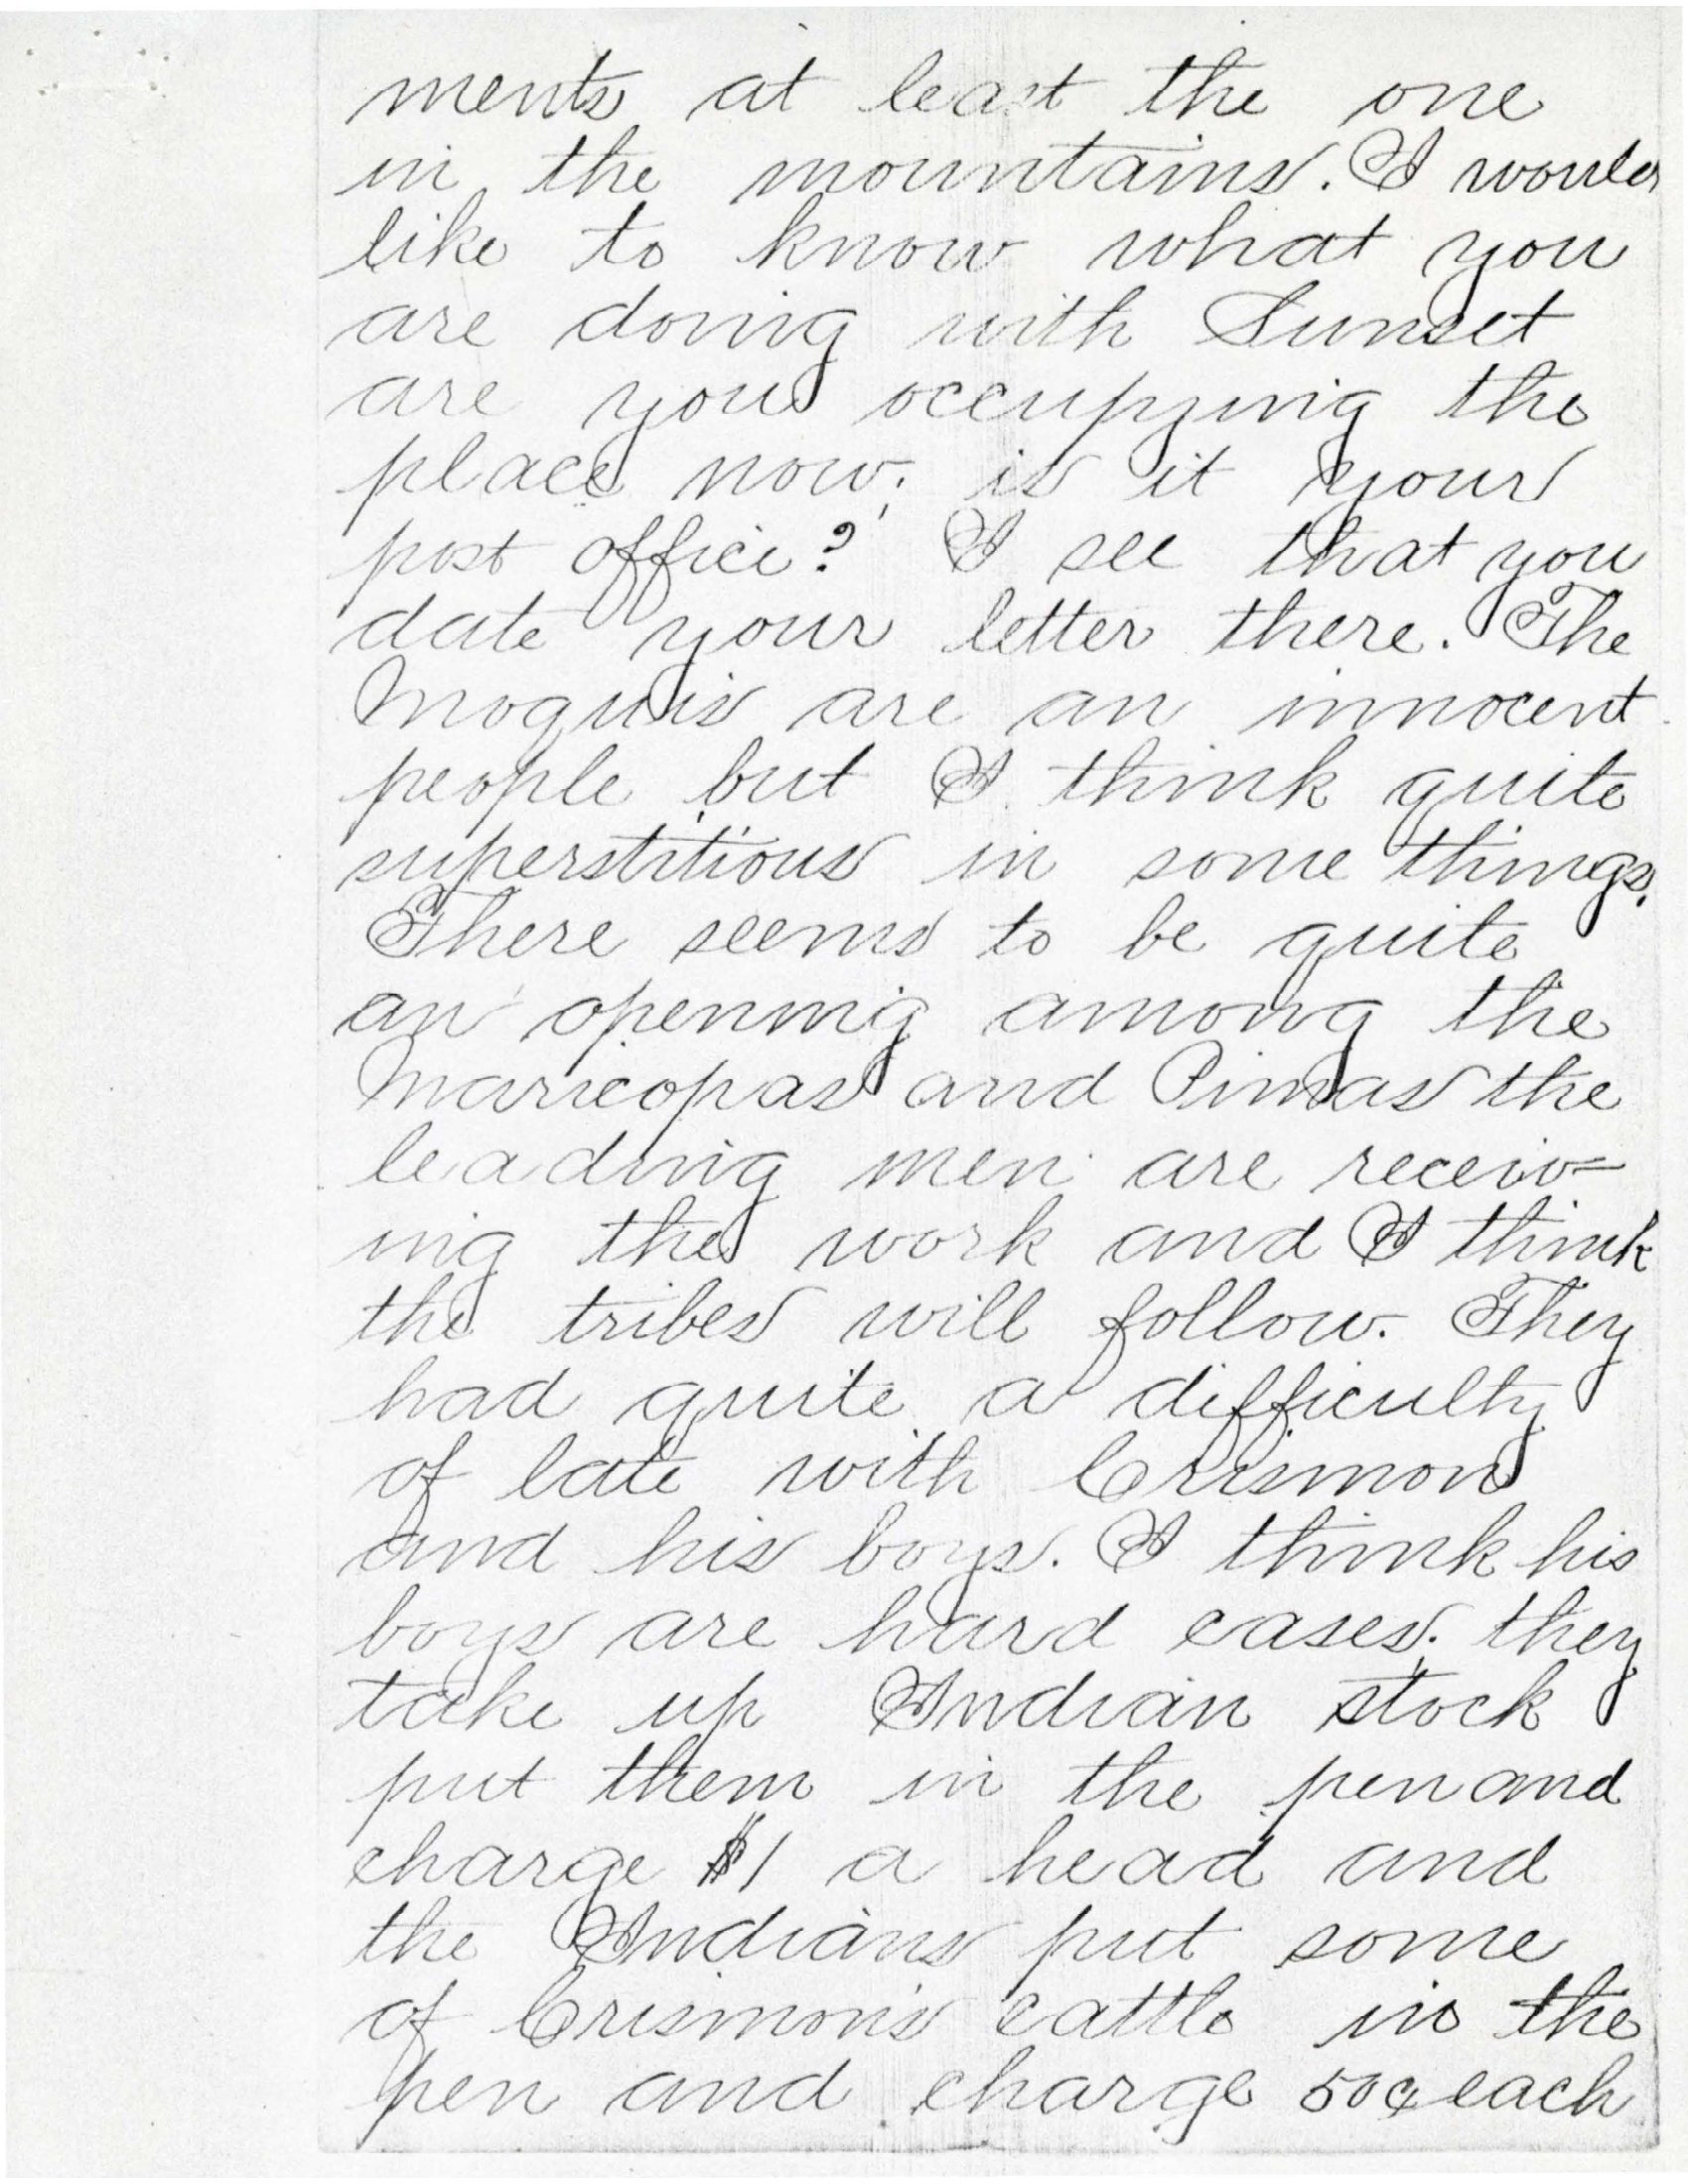 ments at least the one
in the mountains. I would
like to know what you
are doing with Sunset
are you occupying the
place now; is it your
post office? I see that you
date your letter there. The
Moquis are an innocent
people but I think quite
superstitious in some things.
There seems to be quite
an opening among the
Maricopas and Pimas the
leading men are receiv=
ing the work and I think
the tribes will follow. They
had quite a difficulty
of late with Crismon
and his boys. I think his
boys are hard cases; they
take up Indian stock
put them in the pen and
charge $1 a head and
the Indians put some
of Crismon's cattle in the
pen and charge 50¢ each